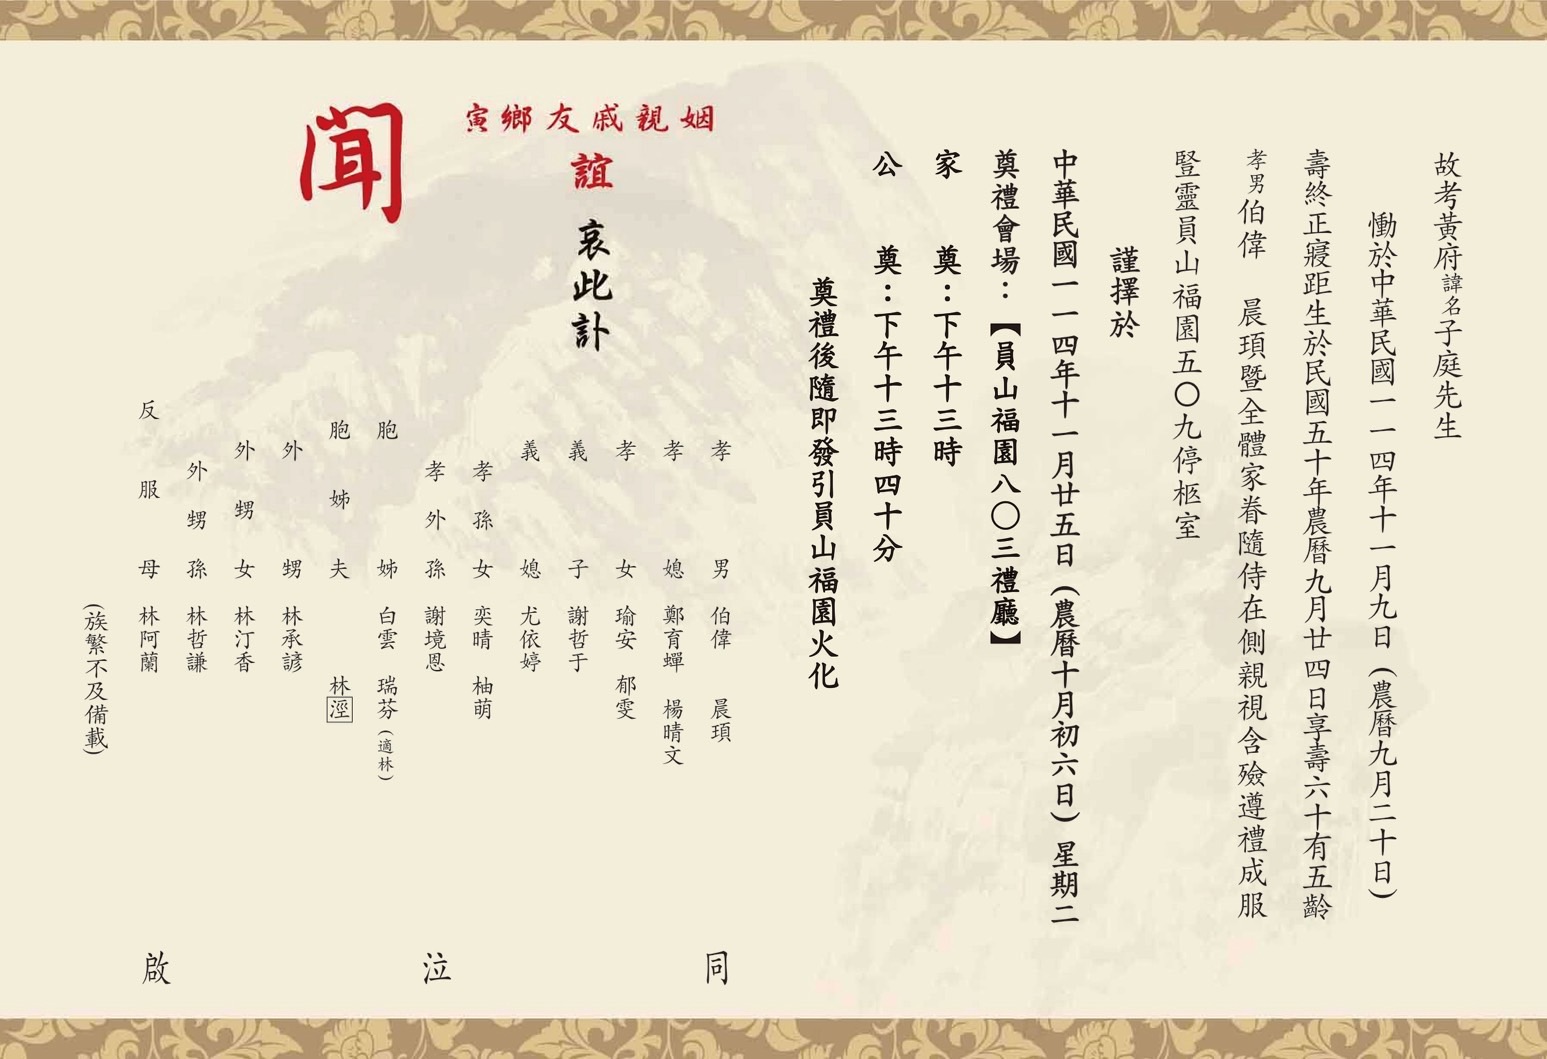 故考黃府諱名子庭先生
慟於中華民國一一四年十一月九日（農曆九月二十日）
壽終正寢距生於民國五十年農曆九月廿四日享壽六十有五齡
孝男伯偉　晨頊暨全體家眷隨侍在側親視含殮遵禮成服
豎靈員山福園五〇九停柩室
謹擇於
中華民國一一四年十一月廿五日（農曆十月初六日）星期二
奠禮會場：【員山福園八〇三禮廳】
家　奠：下午十三時
公　奠：下午十三時四十分
奠禮後隨即發引員山福園火化
寅鄉友戚親姻
誼　哀此訃
聞
孝男　伯偉　晨頊
孝媳　鄭育蟬　楊晴文
孝女　瑜安　郁雯
義子　謝哲于
義媳　尤依婷
孝孫女　奕晴　柚萌
孝外孫　謝境恩
胞姊　白雲　瑞芬（適林）
胞姊夫　林涇
外甥　林承諺
外甥女　林汀香
外甥孫　林哲謙
反服母　林阿蘭
（族繁不及備載）
同　泣　啟